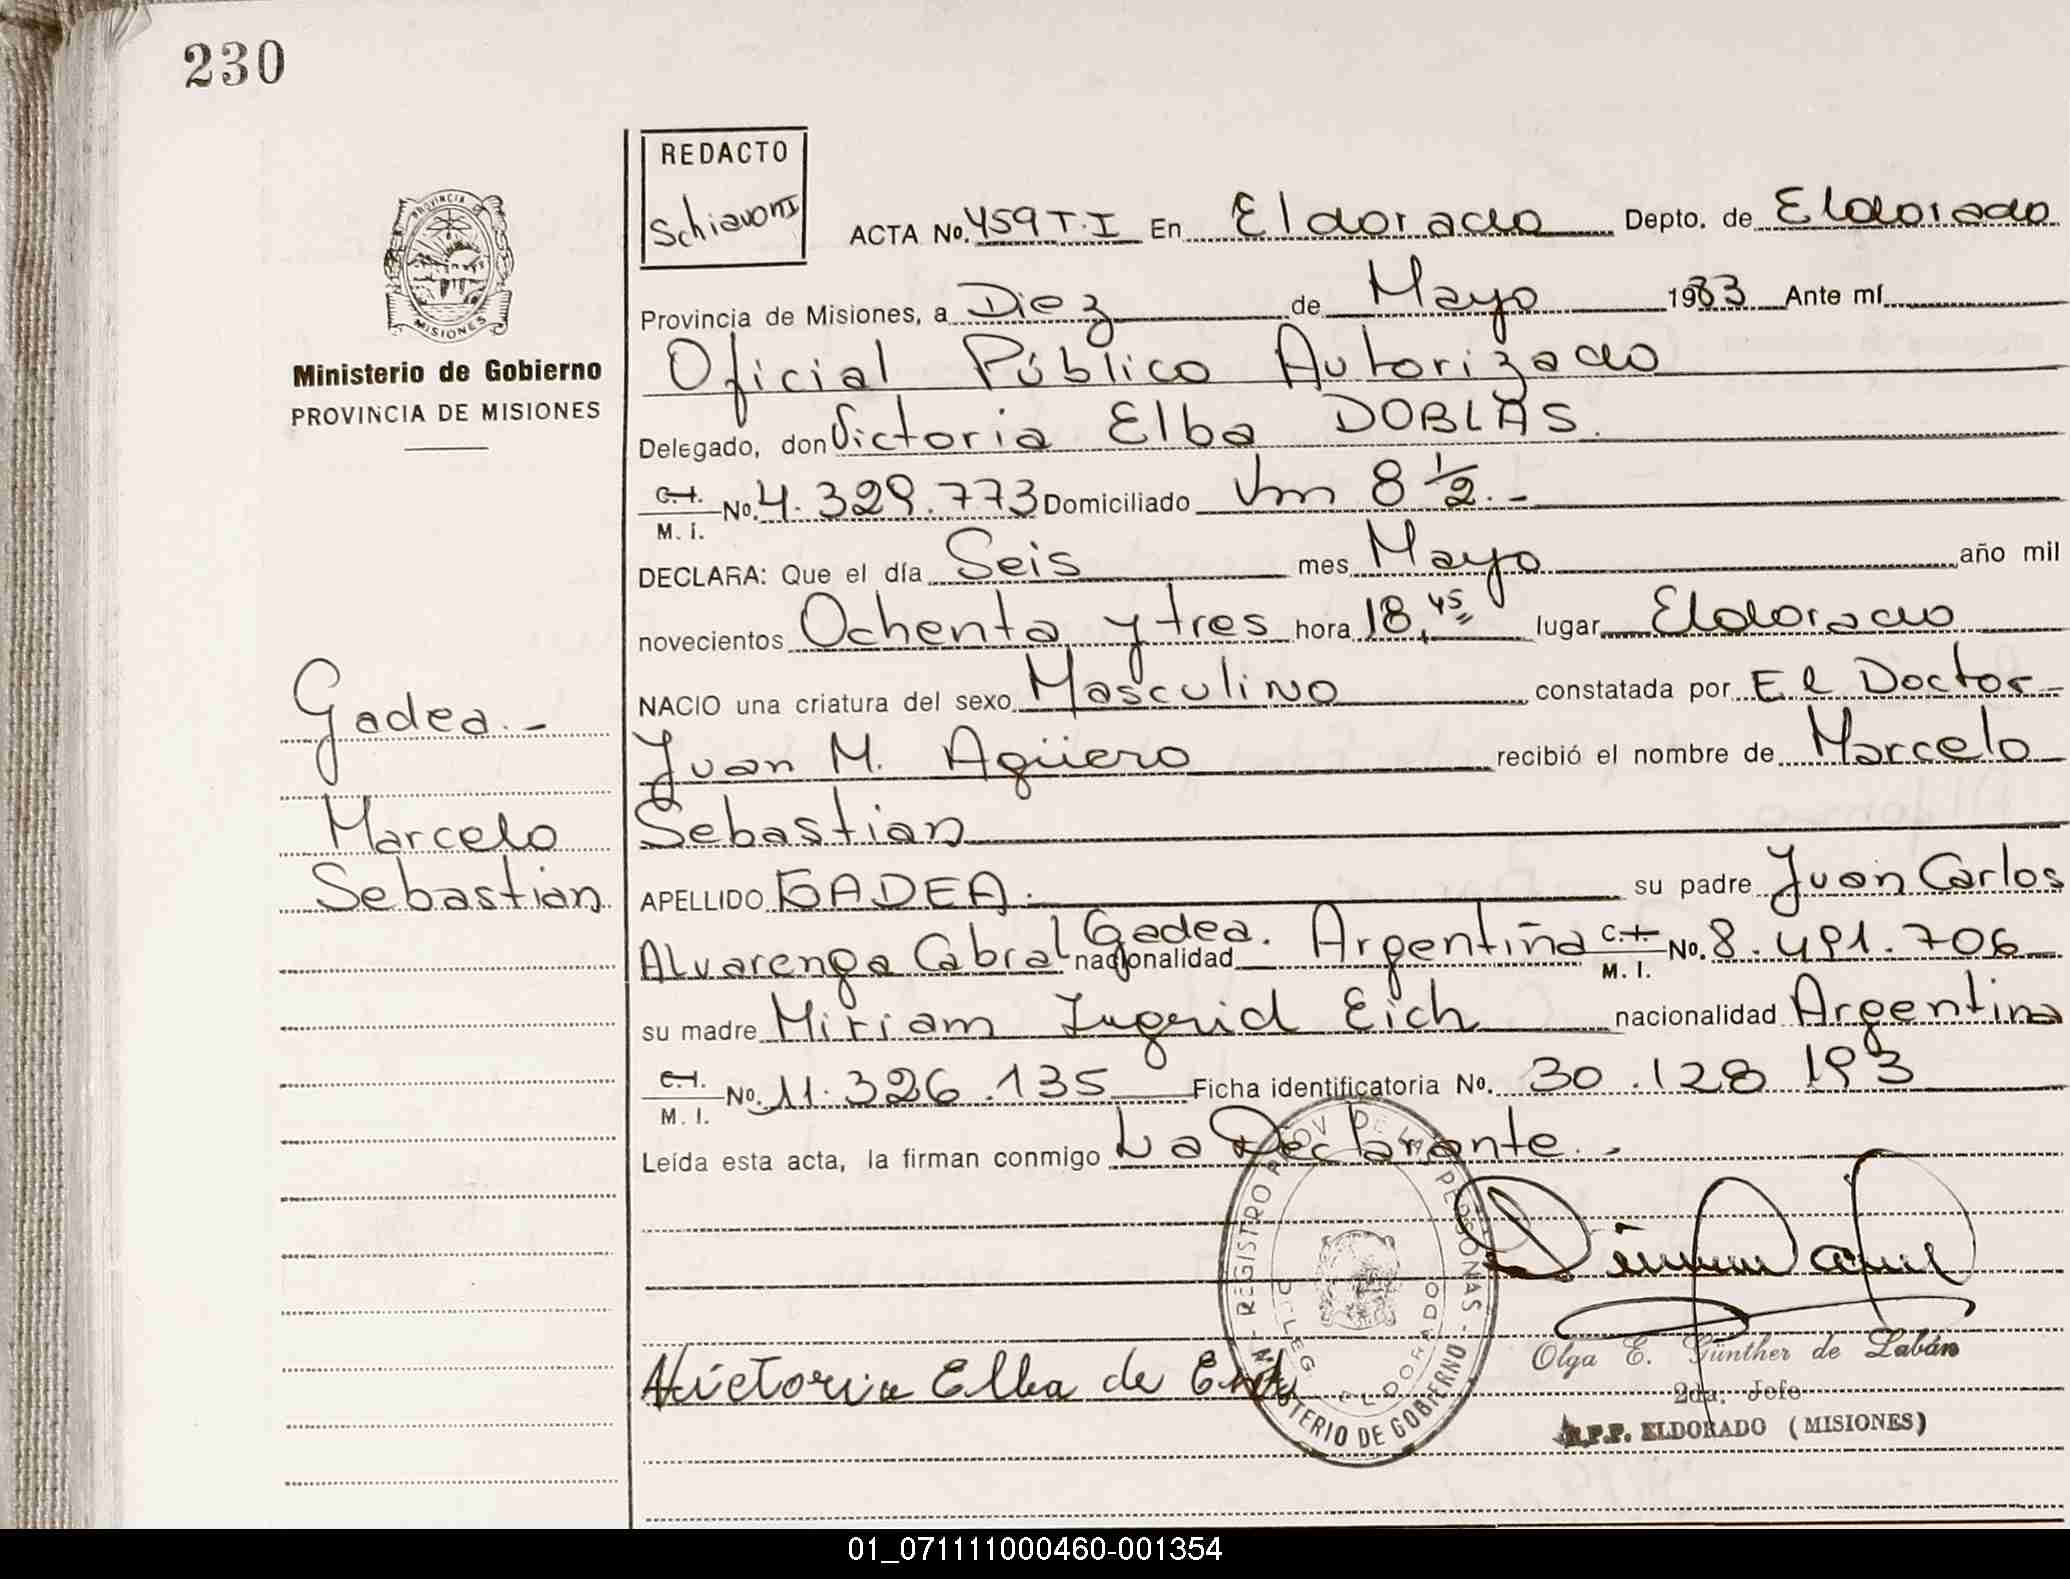 230
REDACTO
Schiavoni
PROVINCIA DE
MISIONES
Ministerio de Gobierno
PROVINCIA DE MISIONES
ACTA No. 459 T.I En Eldorado Depto. de Eldorado
Provincia de Misiones, a Diez de Mayo 1983 Ante mí
Oficial Público Autorizado
Delegado, don Victoria Elba DOBLAS.
C.I. M.I. No. 4.329.773 Domiciliado Km 8 1/2.-
DECLARA: Que el día Seis mes Mayo año mil
novecientos Ochenta y tres hora 18,45 lugar Eldorado
NACIO una criatura del sexo Masculino constatada por El Doctor
Juan M. Agüero recibió el nombre de Marcelo
Sebastian
APELLIDO GADEA. su padre Juan Carlos
Alvarenga Cabral Gadea. nacionalidad Argentina C.I. M.I. No. 8.491.706
su madre Miriam Ingrid Eich nacionalidad Argentina
C.I. M.I. No. 11.326.135 Ficha identificatoria No. 30.128 193
Leída esta acta, la firman conmigo La Declarante.-
Gadea.-
Marcelo
Sebastian
REGISTRO PROV. DE LAS PERSONAS
MINISTERIO DE GOBIERNO
DELEG. ELDORADO
Victoria Elba de
Olga E. Günther de Labán
2da. Jefe
R.P.P. ELDORADO (MISIONES)
01_071111000460-001354